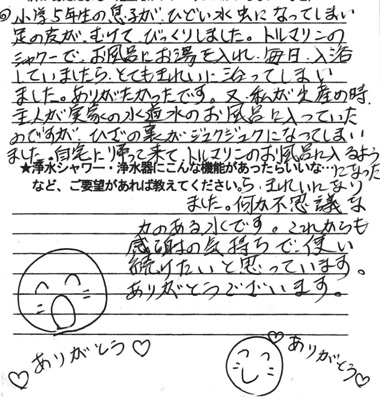 小学5年生の息子が、ひどい水虫になってしまい
足の皮がむけて、びっくりしました。トルマリンの
シャワーで、お風呂にお湯を入れ、毎日、入浴
していましたら、とてもきれいに治ってしまい
ました。ありがたかったです。又、私が出産の時、
主人が実家の水道水のお風呂に入っていた
のですが、ひざの裏がジュクジュクになってしまい
ました。自宅に帰って来て、トルマリンのお風呂に入るよう
になった
★浄水シャワー・浄水器にこんな機能があったらいいな…
など、ご要望があれば教えてください。
ら、きれいになり
ました。何か不思議な
力のある水です。これからも
感謝の気持ちで、使い
続けたいと思っています。
ありがとうございます。
ありがとう♡
♡ありがとう♡